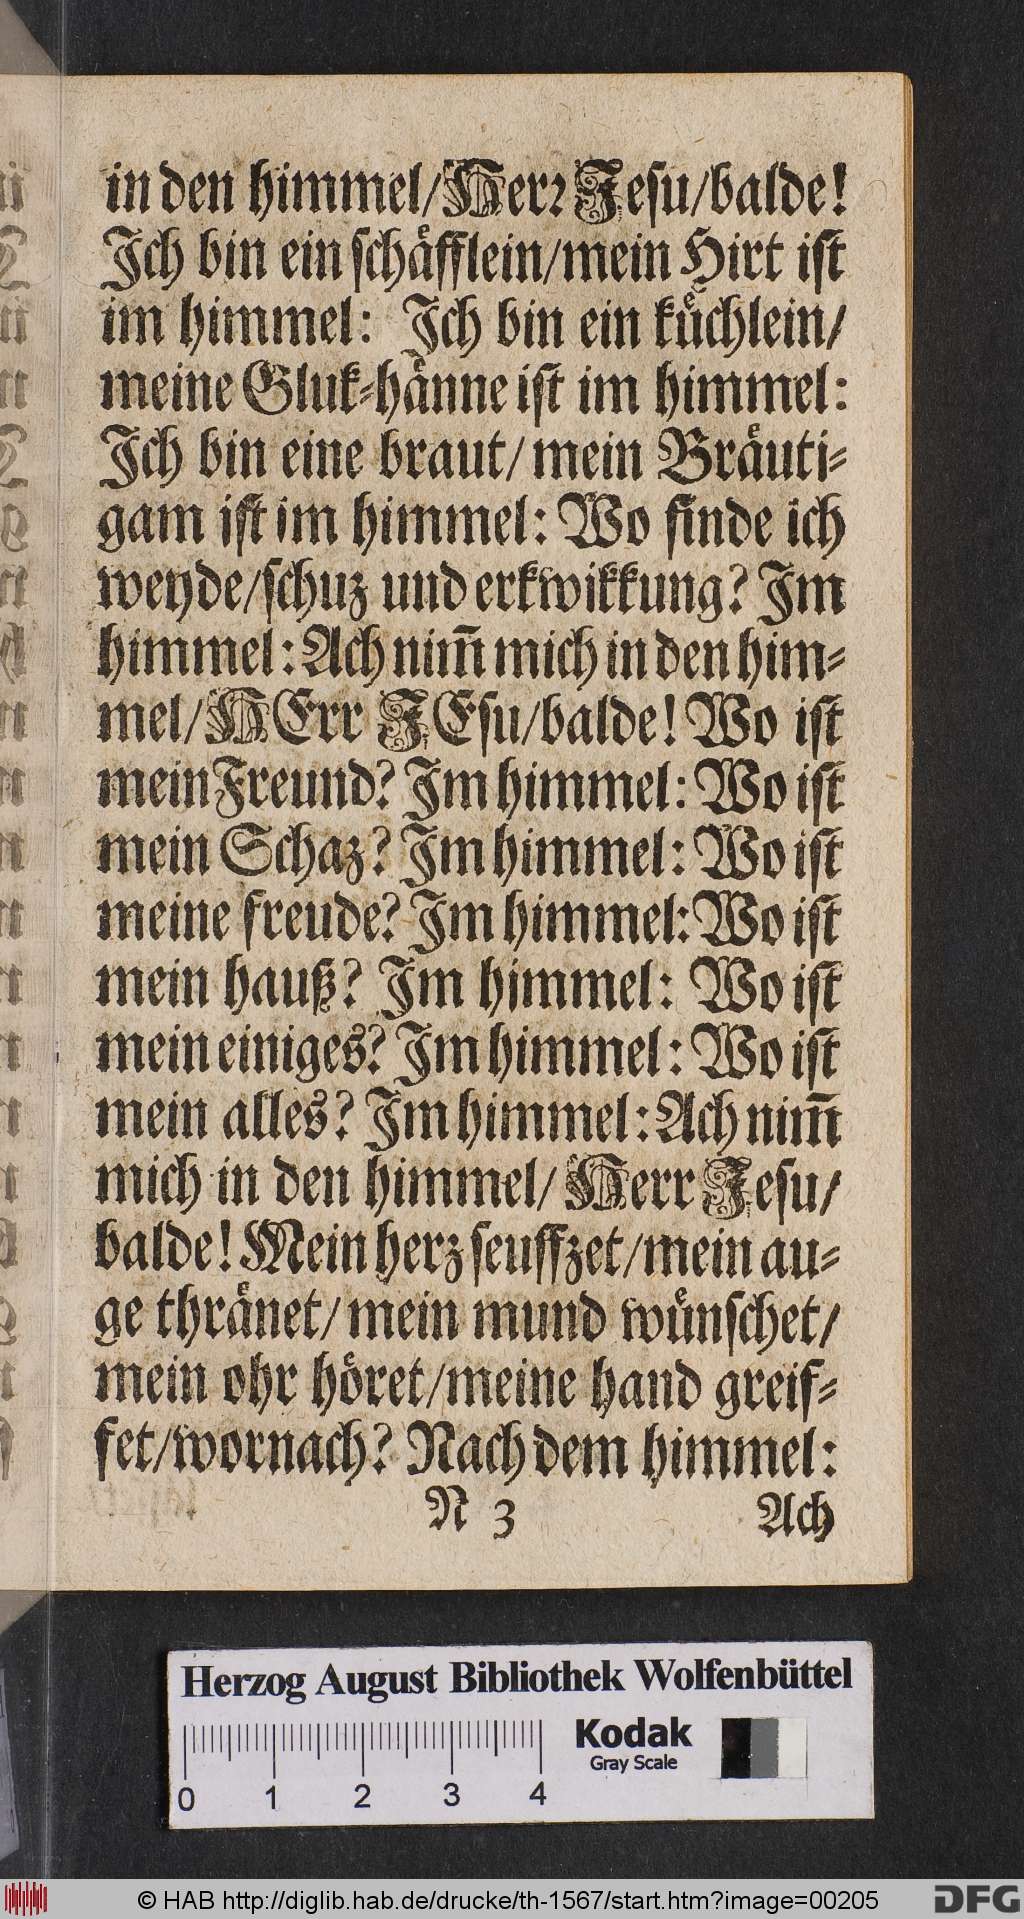 in den himmel/ Herꝛ Jesu/ balde!
Jch bin ein schäfflein/ mein Hirt ist
im himmel: Jch bin ein küchlein/
meine Gluk-hänne ist im himmel:
Jch bin eine braut/ mein Bräuti-
gam ist im himmel: Wo finde ich
weyde/ schuz und erkwikkung? Jm
himmel: Ach nim̃ mich in den him-
mel/ HErr JEsu/ balde! Wo ist
mein Freund? Jm himmel: Wo ist
mein Schaz? Jm himmel: Wo ist
meine freude? Jm himmel: Wo ist
mein hauß? Jm himmel: Wo ist
mein einiges? Jm himmel: Wo ist
mein alles? Jm himmel: Ach nim̃
mich in den himmel/ Herr Jesu/
balde! Mein herz seuffzet/ mein au-
ge thränet/ mein mund wünschet/
mein ohr höret/ meine hand greif-
fet/ wornach? Nach dem himmel:
N 3 Ach
Herzog August Bibliothek Wolfenbüttel
Kodak
Gray Scale
0 1 2 3 4
© HAB http://diglib.hab.de/drucke/th-1567/start.htm?image=00205
DFG